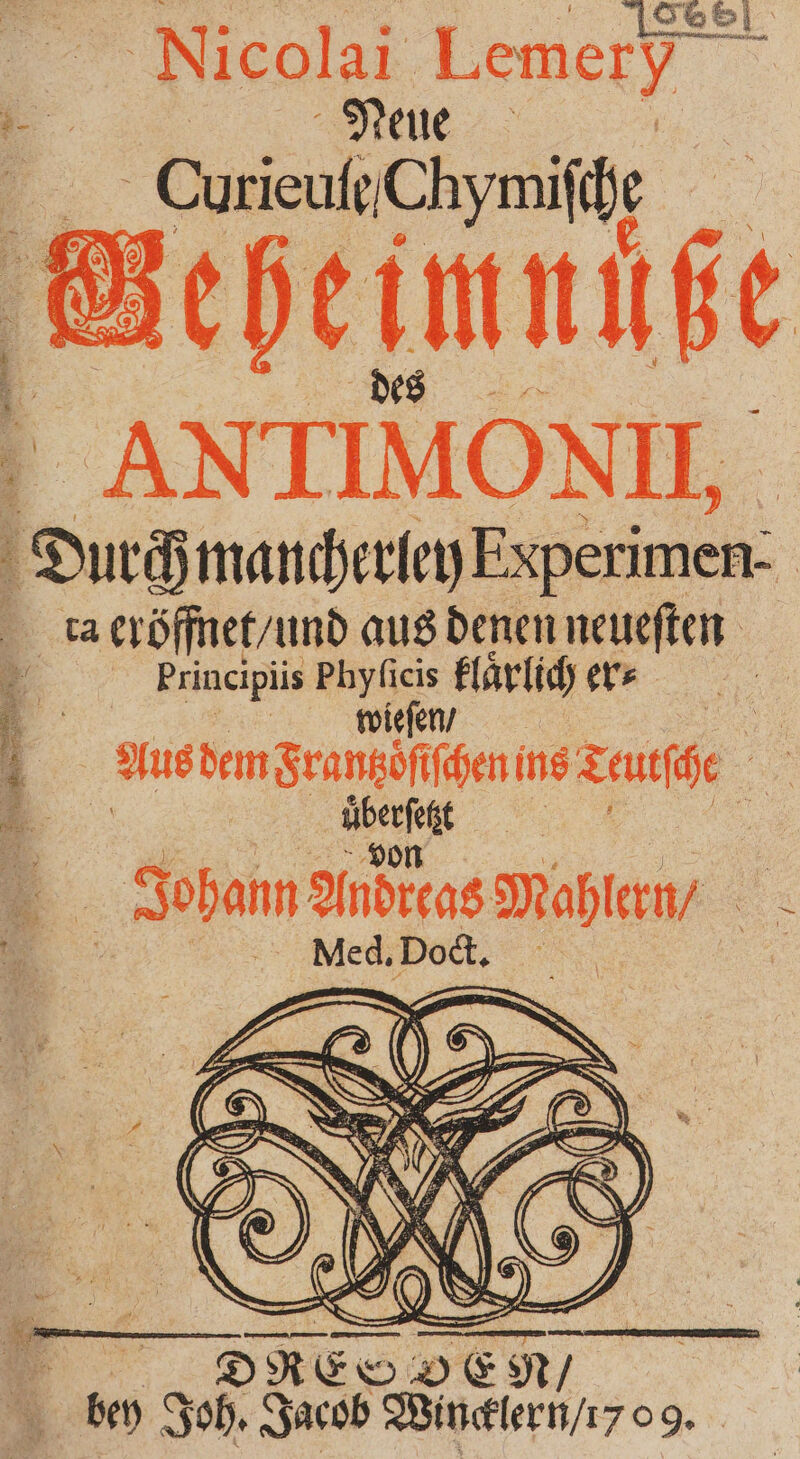 70661
Nicolai Lemery
Neue
Curieuſe/Chymiſche
Geheimnuͤße
des
ANTIMONII,
Durch mancherley Experimen-
ta eröffnet/und aus denen neueſten
Principiis Phyſicis klaͤrlich er-
wieſen/
Aus dem Frantzoͤſiſchen ins Teutſche
uͤberſetzt
von
Johann Andreas Mahlern/
Med. Doct.
DRESDEN/
bey Joh. Jacob Wincklern/1709.